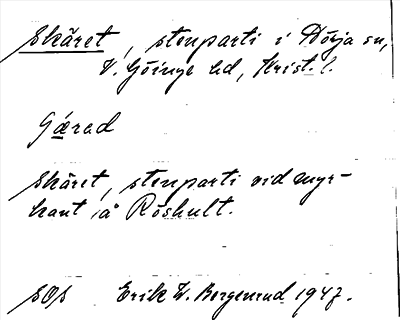 Skäret, stenparti i Röja sn,
V. Göinge hd, Krist. l.
Gärad
Skäret, stenparti vid myr-
kant å Röshult.
SOS Erik W. Bergenrud 1947.